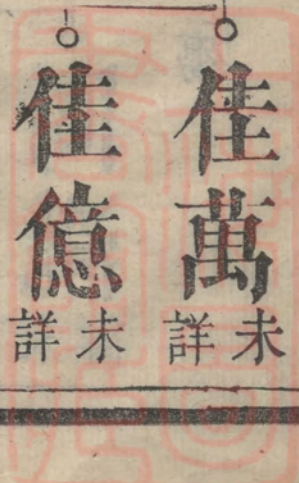 佳萬
未詳
佳億
未詳